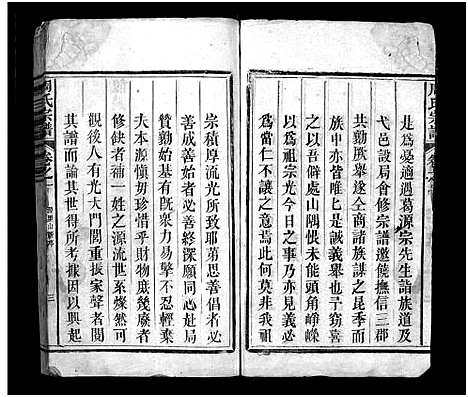 是為憂適遇葛源宗先生諸族道及
弋邑設局會修宗譜邀饒撫信三郡
共勷厥舉遂仝商諸族謀之昆季而
族中亦皆唯匕是誠義舉也予窃喜
之以吾僻處山隅恨未能頭角崢嶸
為祖宗光今日之事乃亦見義必
為當仁不讓之意焉此何莫非我
宗積厚流光所致耶第思善倡者必
善成善始者必善終諸同志赴局
贊勷始其旣衆力易擎不忍輕棄
夫本源慎毋珍惜乎財物庶幾廢者
修缺者補一姓之源流世系燦然可
觀後人有光大門閭重振家聲者閱
其譜而論其世得所考據因以興起
周氏宗譜
卷之一
三
周氏宗譜
卷之